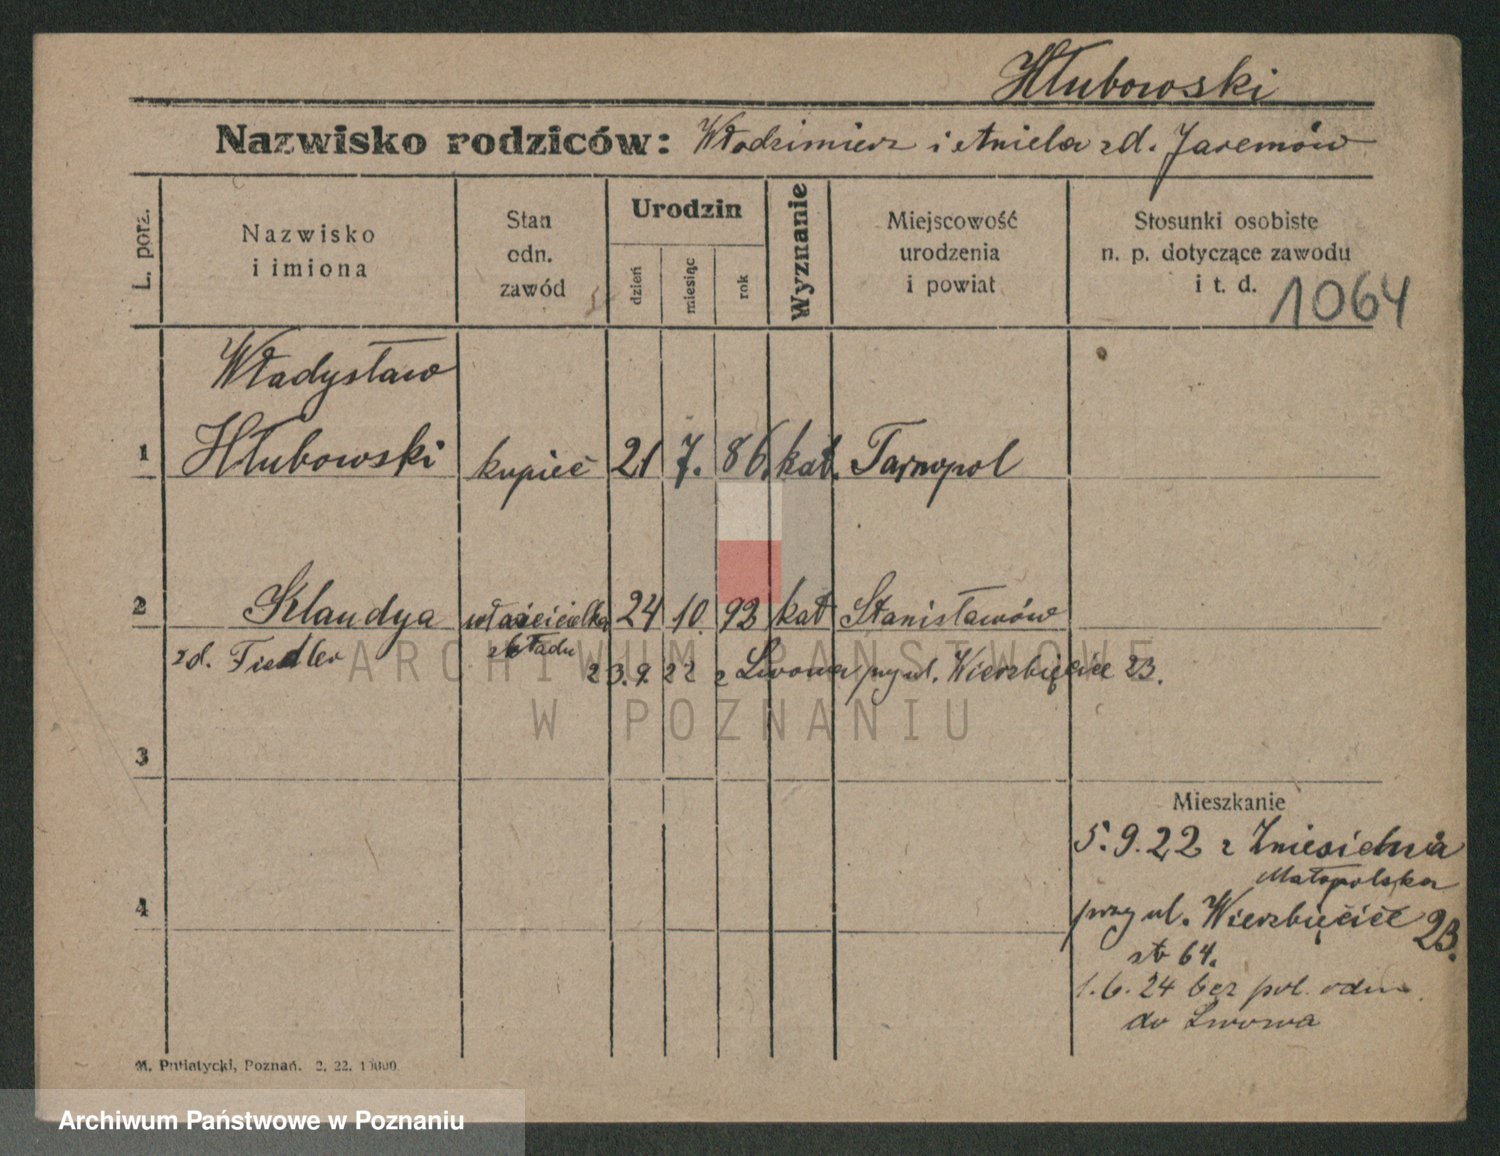 Hłubowski
Nazwisko rodziców: Włodzimierz i Aniela zd. Jaremów
L. porz.
Nazwisko
i imiona
Stan
odn.
zawód
Urodzin
dzień
miesiąc
rok
Wyznanie
Miejscowość
urodzenia
i powiat
Stosunki osobiste
n. p. dotyczące zawodu
i t. d.
1064
Władysław
1 Hłubowski kupiec 21 7. 86. kat. Tarnopol
2 Klaudya właścicielka 24 10. 92 kat Stanisławów
zd. Fiedler składu
23.9.22 z Lwowa przy ul. Wierzbięcice 23.
ARCHIWUM PAŃSTWOWE
W POZNANIU
3
Mieszkanie
5.9.22 z Zniesienia
Małopolska
4
przy ul. Wierzbięcice 23.
64.
1.6.24 bez pol. odm.
do Lwowa
M. Putiatycki, Poznań. 2. 22. 10000
Archiwum Państwowe w Poznaniu